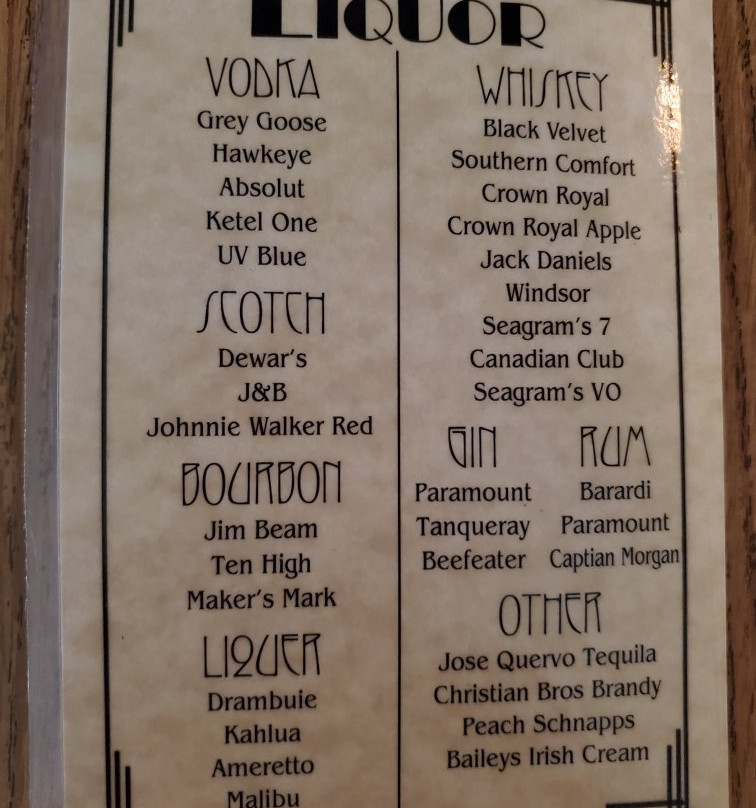 LIQUOR
VODKA
Grey Goose
Hawkeye
Absolut
Ketel One
UV Blue
SCOTCH
Dewar's
J&B
Johnnie Walker Red
BOURBON
Jim Beam
Ten High
Maker's Mark
LIQUER
Drambuie
Kahlua
Ameretto
Malibu
WHISKEY
Black Velvet
Southern Comfort
Crown Royal
Crown Royal Apple
Jack Daniels
Windsor
Seagram's 7
Canadian Club
Seagram's VO
GIN
Paramount
Tanqueray
Beefeater
RUM
Barardi
Paramount
Captian Morgan
OTHER
Jose Quervo Tequila
Christian Bros Brandy
Peach Schnapps
Baileys Irish Cream